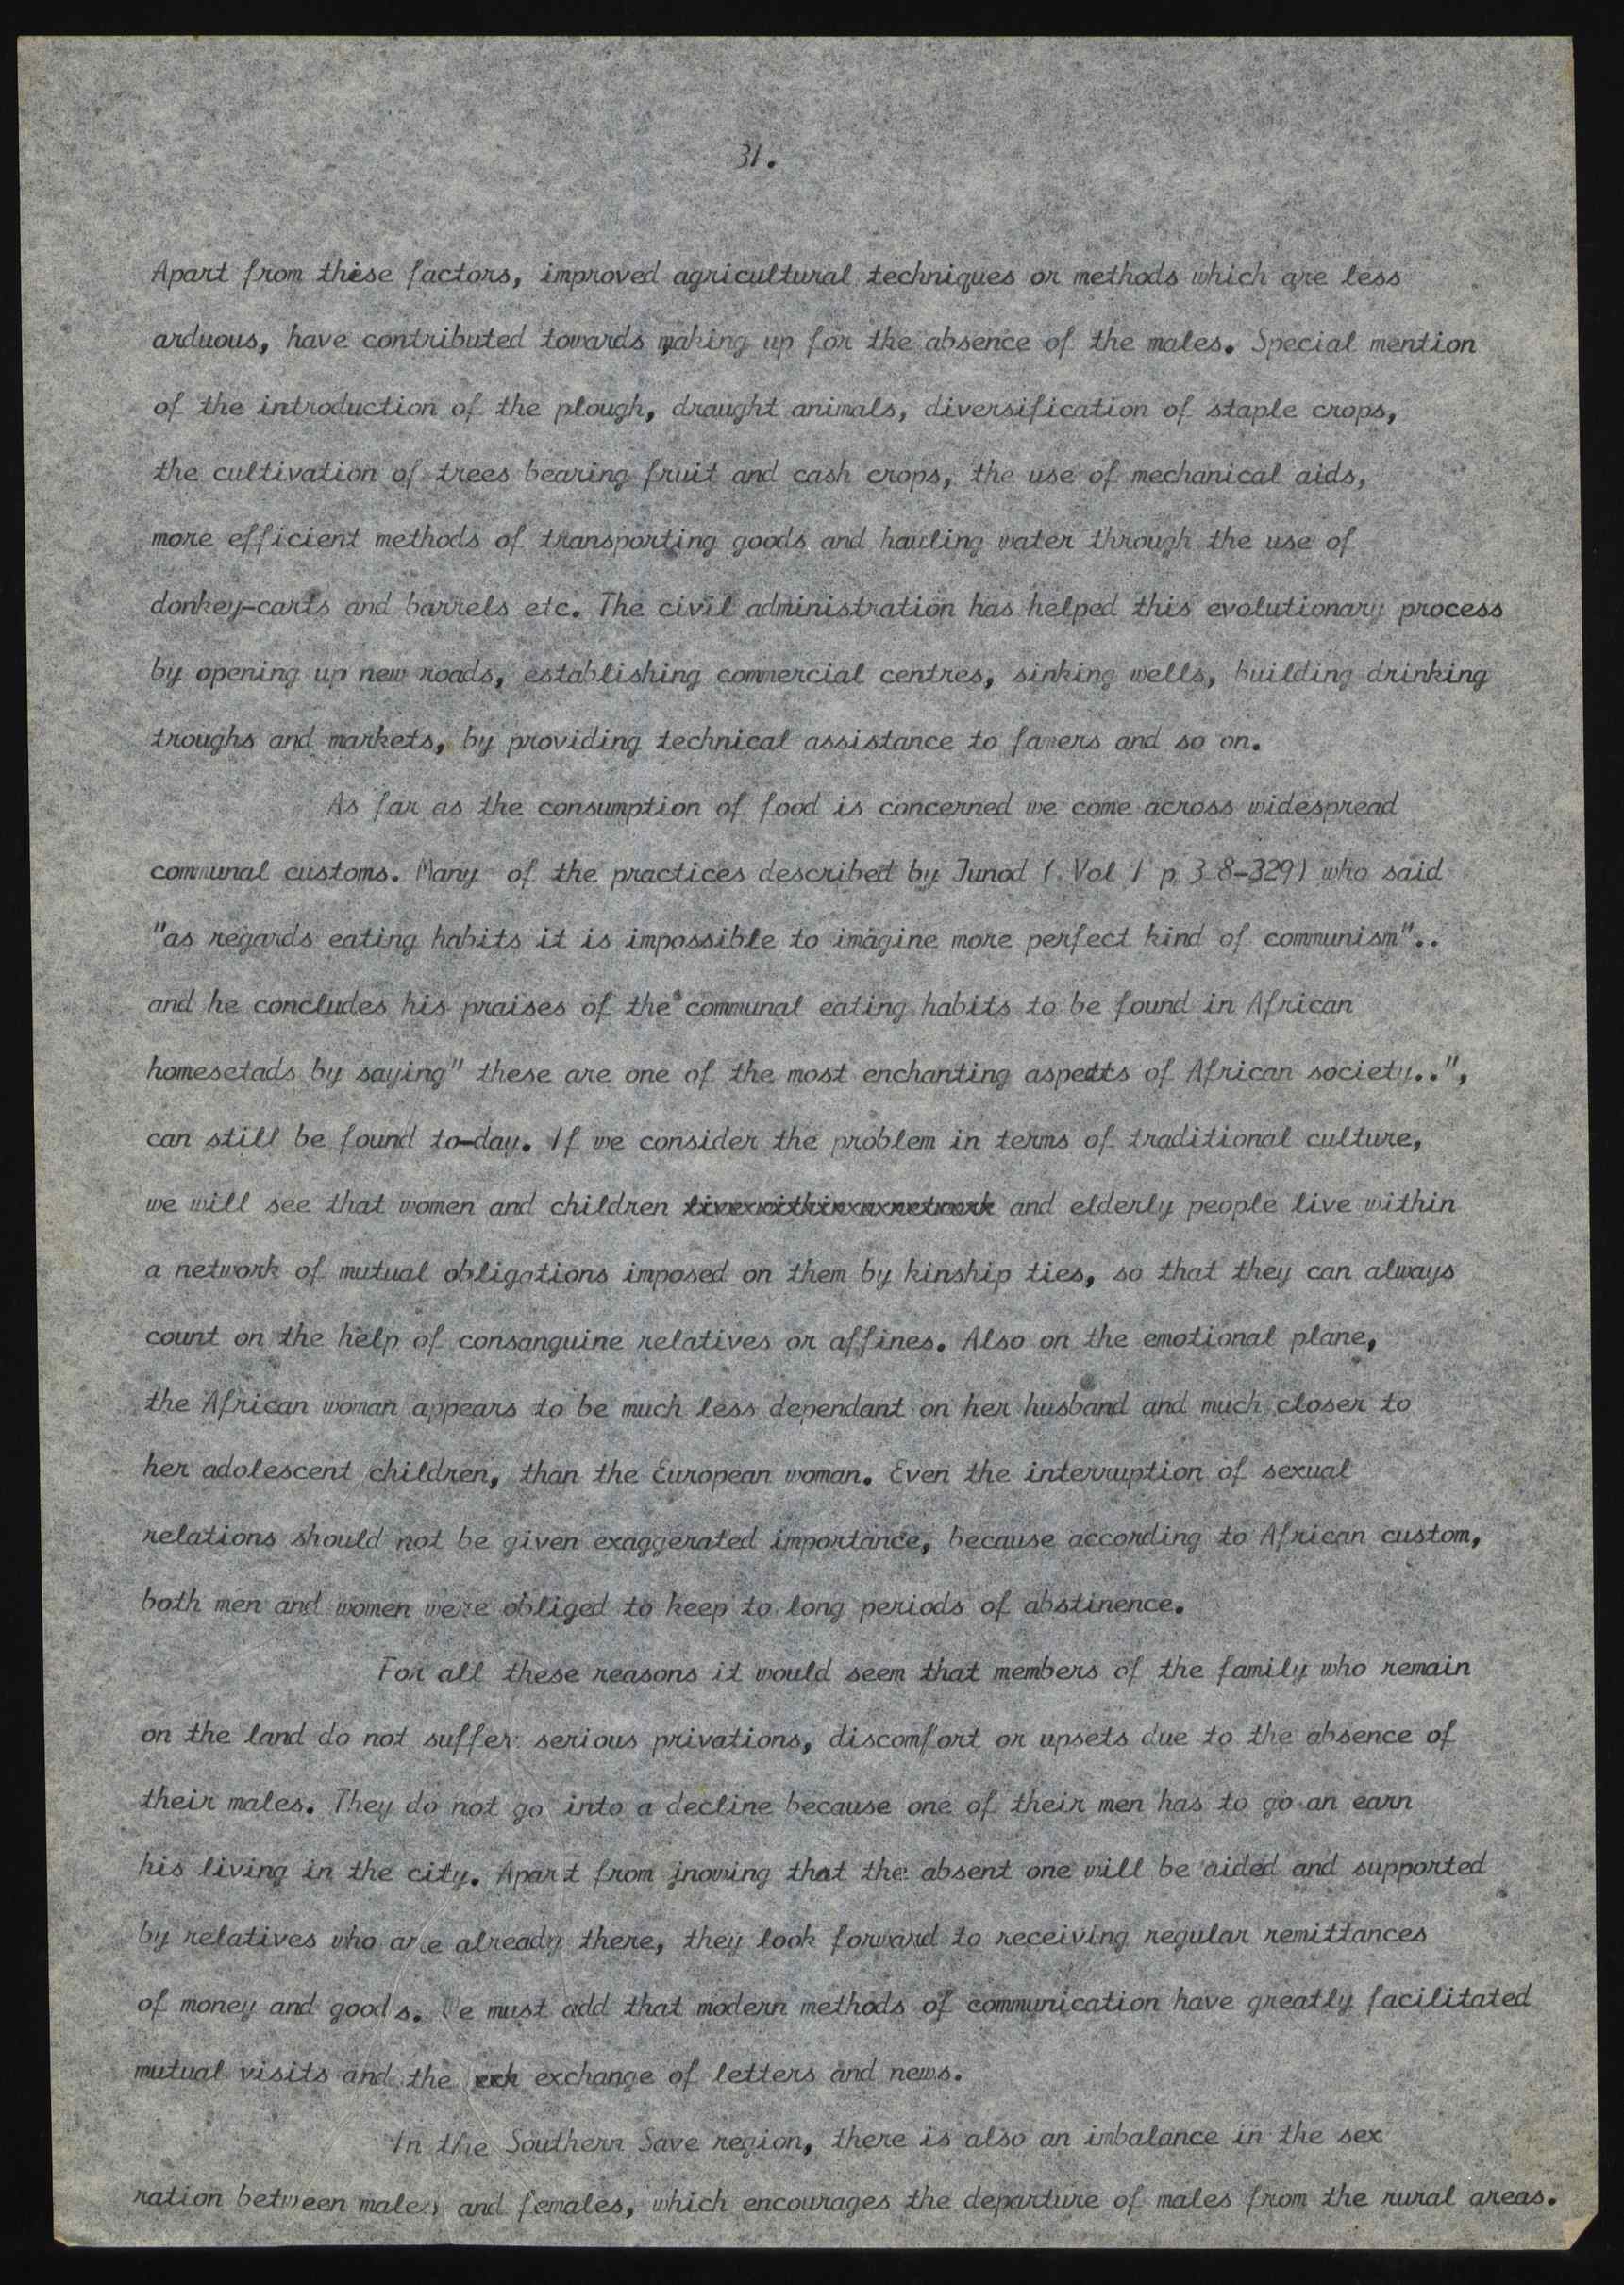 31.
Apart from these factors, improved agricultural techniques or methods which are less
arduous, have contributed towards making up for the absence of the males. Special mention
of the introduction of the plough, draught animals, diversification of staple crops,
the cultivation of trees bearing fruit and cash crops, the use of mechanical aids,
more efficient methods of transporting goods and hauling water through the use of
donkey-carts and barrels etc. The civil administration has helped this evolutionary process
by opening up new roads, establishing commercial centres, sinking wells, building drinking
troughs and markets, by providing technical assistance to famers and so on.
As far as the consumption of food is concerned we come across widespread
communal customs. Many of the practices described by Junod ( Vol I p 3 8-329) who said
"as regards eating habits it is impossible to imagine more perfect kind of communism"..
and he concludes his praises of the communal eating habits to be found in African
homesetads by saying" these are one of the most enchanting aspetts of African society..",
can still be found to-day. If we consider the problem in terms of traditional culture,
we will see that women and children livexwithinxaxnetwork and elderly people live within
a network of mutual obligations imposed on them by kinship ties, so that they can always
count on the help of consanguine relatives or affines. Also on the emotional plane,
the African woman appears to be much less dependant on her husband and much closer to
her adolescent children, than the European woman. Even the interruption of sexual
relations should not be given exaggerated importance, because according to African custom,
both men and women were obliged to keep to long periods of abstinence.
For all these reasons it would seem that members of the family who remain
on the land do not suffer serious privations, discomfort or upsets due to the absence of
their males. They do not go into a decline because one of their men has to go an earn
his living in the city. Apart from jnowing that the absent one will be aided and supported
by relatives who are already there, they look forward to receiving regular remittances
of money and goods. We must add that modern methods of communication have greatly facilitated
mutual visits and the exh exchange of letters and news.
In the Southern Save region, there is also an imbalance in the sex
ration between males and females, which encourages the departure of males from the rural areas.